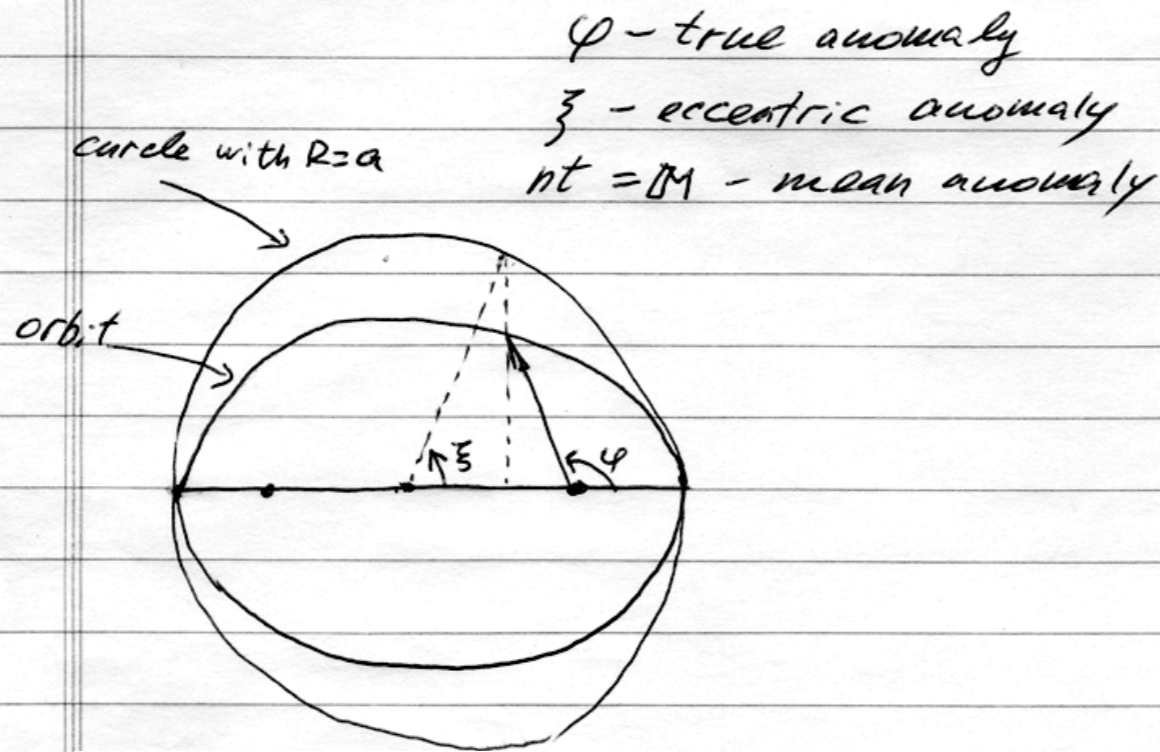 φ - true anomaly
ξ - eccentric anomaly
nt = M - mean anomaly
circle with R=a
orbit
ξ
φ